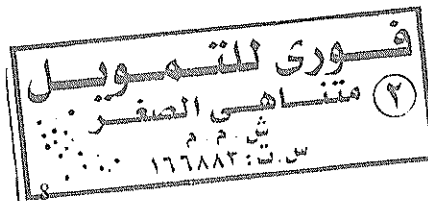 فورى للتمويل
متناهى الصغر ٢
ش . م . م
س.ت: ١٦٦٨٨٣
8